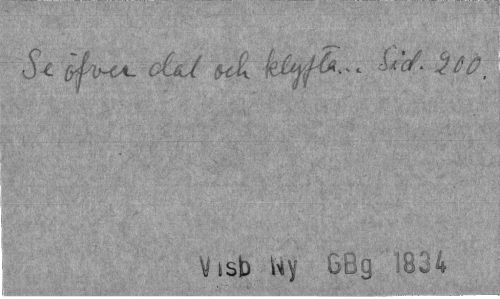 Se öfver dal och klyfta... Sid. 200.
Visb Ny GBg 1834